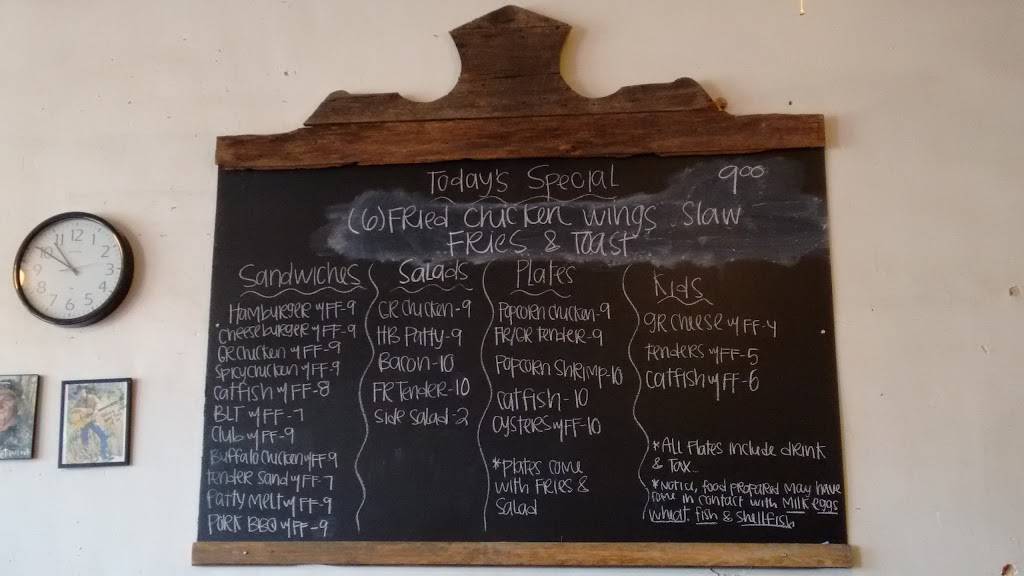 Today's Special 9.00
(6) Fried Chicken Wings Slaw
Fries & Toast
Sandwiches
Hamburger w/FF-9
Cheeseburger w/FF-9
GR Chicken w/FF-9
Spicy Chicken w/FF-9
Catfish w/FF-8
BLT w/FF-7
Club w/FF-9
Buffalo Chicken w/FF-9
Tender Sand w/FF-7
Patty Melt w/FF-9
Pork BBQ w/FF-9
Salads
GR Chicken-9
HB Patty-9
Bacon-10
FR Tender-10
Side Salad-2
Plates
Popcorn Chicken-9
FR/GR Tender-9
Popcorn Shrimp-10
Catfish-10
Oysters w/FF-10
*Plates come
with Fries &
Salad
Kids
GR Cheese w/FF-4
Tenders w/FF-5
Catfish w/FF-6
*All Plates include drink
& Tax
*Notice, food prepared may have
come in contact with Milk eggs
wheat, fish & shellfish
12
1
2
3
4
5
6
7
8
9
10
11